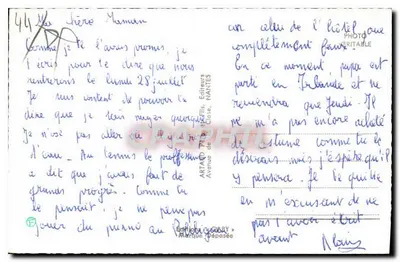 44
Ma chère Maman
Comme je te l'avais promis, je
t'écris pour te dire que nous
rentrerons le lundi 28 juillet
Je suis content de pouvoir te
dire que je sais nager
Je n'ose pas aller à
d'eau. Au tennis le professeur
a dit que j'avais fait de
grands progrès. Comme tu
le pensait, je ne peux pas
jouer du piano au
car celui de l'hôtel joue
complètement faux.
En ce moment, papa est
parti en Irlande et ne
reviendra que Jeudi. Il
ne m'a pas encore acheté
de costume comme tu le
désirais mais j'espère qu'il
y pensera. Je te quitte
en m'excusant de ne
pas t'avoir écrit
avant
Alain
PHOTO
VÉRITABLE
Éditeurs
NANTES